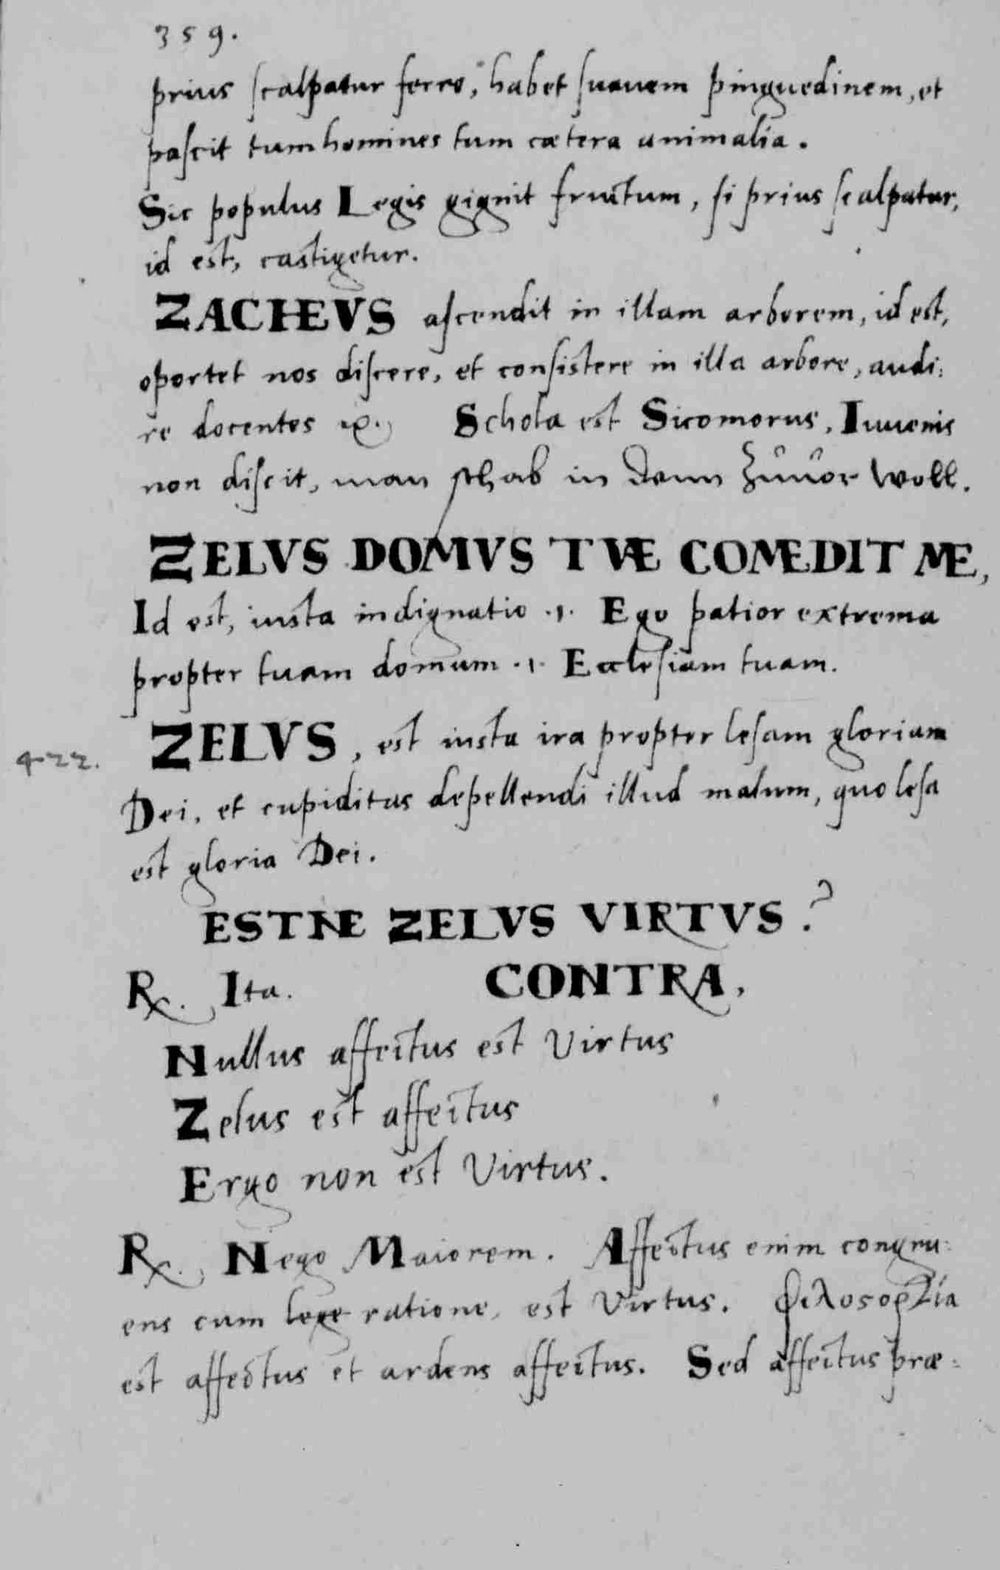 359.
prius scalpatur ferro, habet suauem pinguedinem, et
pascit tum homines tum cætera animalia.
Sic populus Legis gignit fructum, si prius scalpatur,
id est, castigetur.
ZACHEVS ascendit in illam arborem, id est,
oportet nos discere, et consistere in illa arbore, audi:
re docentes Schola est Sicomorus, Iuuenis
non discit, man schab in denn zuuor woll.
ZELVS DOMVS TVÆ COMEDIT ME,
Id est, iusta indignatio .1. Ego patior extrema
propter tuam domum .1. Ecclesiam tuam.
ZELVS, est iusta ira propter lesam gloriam
422.
Dei, et cupiditas depellendi illud malum, quo lesa
est gloria Dei.
ESTNE ZELVS VIRTVS?
R. Ita. CONTRA,
Nullus affectus est Virtus
Zelus est affectus
Ergo non est Virtus.
R. Nego Maiorem. Affectus enim congru:
ens cum lege ratione, est Virtus. Φιλοσοργία
est affectus et ardens affectus. Sed affectus præ: